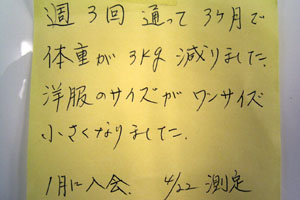 週3回 通って 3ヶ月で
体重が 3kg 減りました.
洋服のサイズが ワンサイズ
小さくなりました.
1月に入会. 4/22 測定